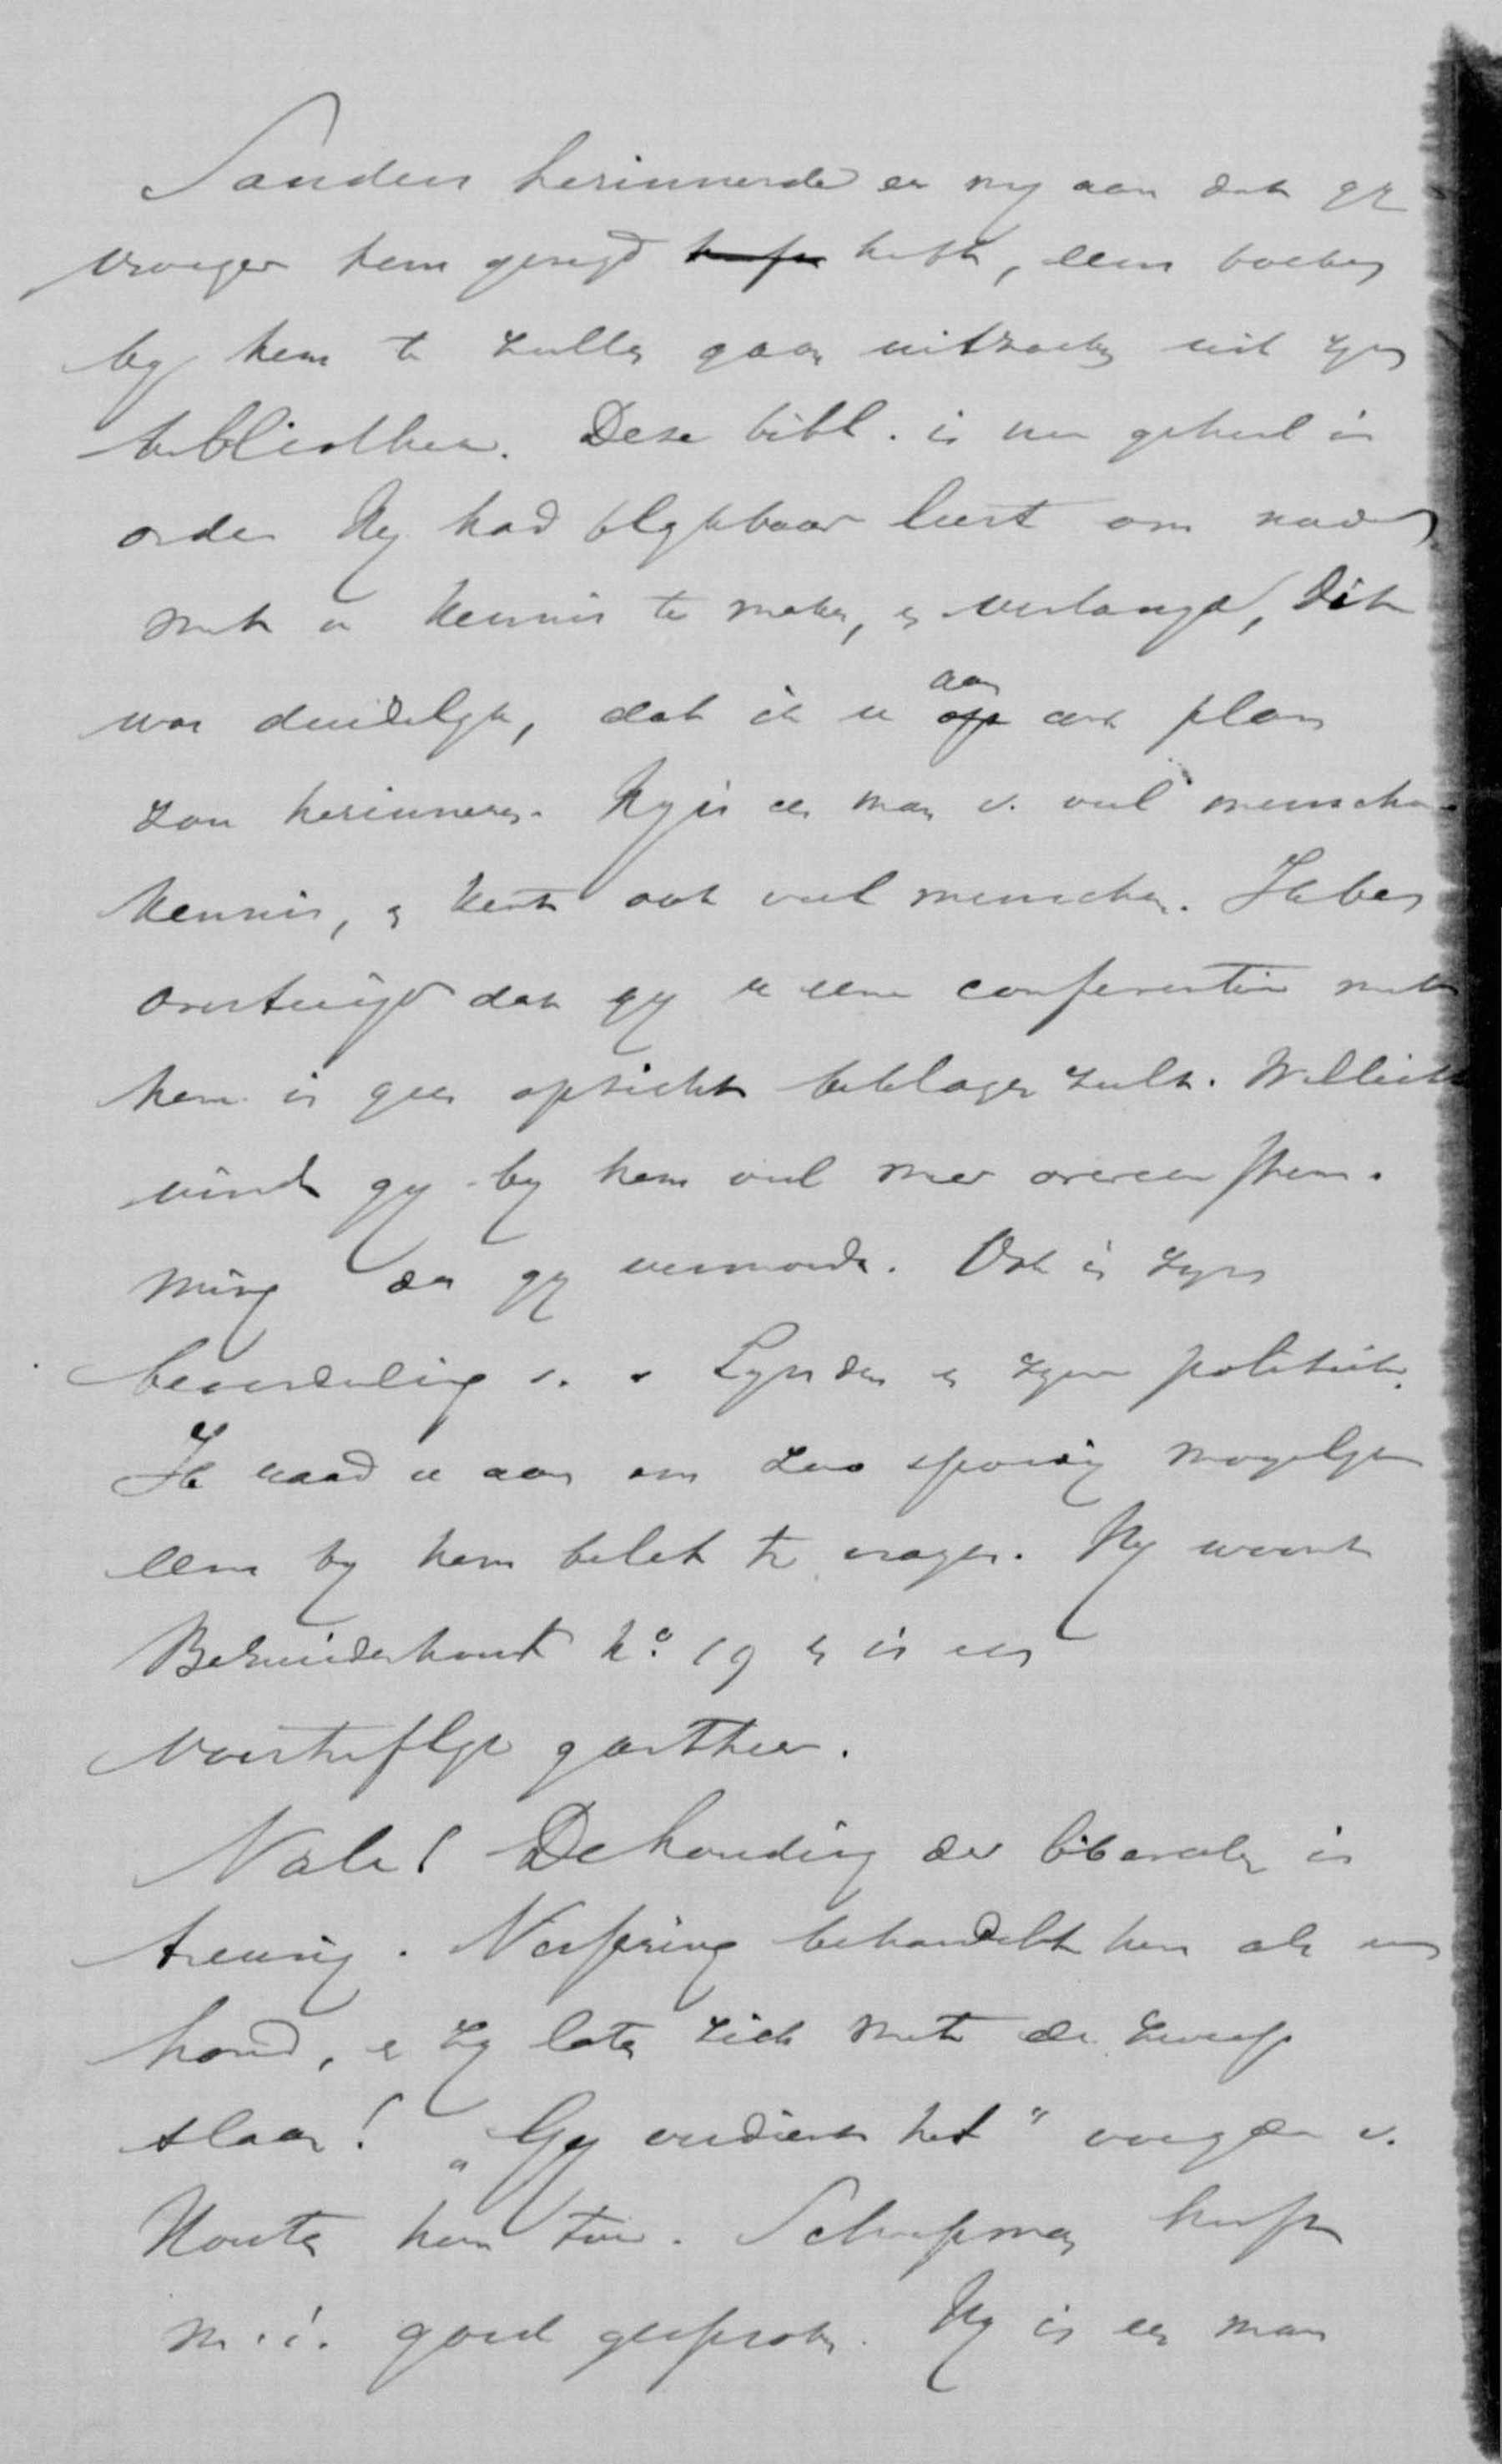 Sanders herinnerde er my aan dat gy
vroeger hem gezegd heeft hebt, eens boeken
by hem te zullen gaan uitzoeken uit zyn
bibliotheek. Deze bibl. is nu geheel in
orde. Hy had blykbaar lust om nader
met u kennis te maken, en verlangde, dit
was duidelyk, dat ik u op aan dat plan
zou herinneren. Hy is een man v. veel menschen
kennis, en kent ook veel menschen. Ik ben
overtuigd dat gy u eene conferentie met
hem in geen opzicht beklagen zult. Wellicht
vindt gy by hem veel meer overeenstem-
ming dan gy vermoedt. Ook in zyn
beoordeeling v. v. Lynden en zyne politiek.
Ik raad u aan om zoo spoedig mogelyk
eens by hem belet te vragen. Hy woont
Bezuidenhout No. 19 en is een
voortreffelyk gastheer.
Vale! De houding der liberalen is
treurig. Verspring behandelt hen als een
hond, en zy laten zich met de zweep
slaan! "Gy verdient het" voegde v.
Houten hen toe. Schaepman heeft
m.i. goed gesproken. Hy is een man